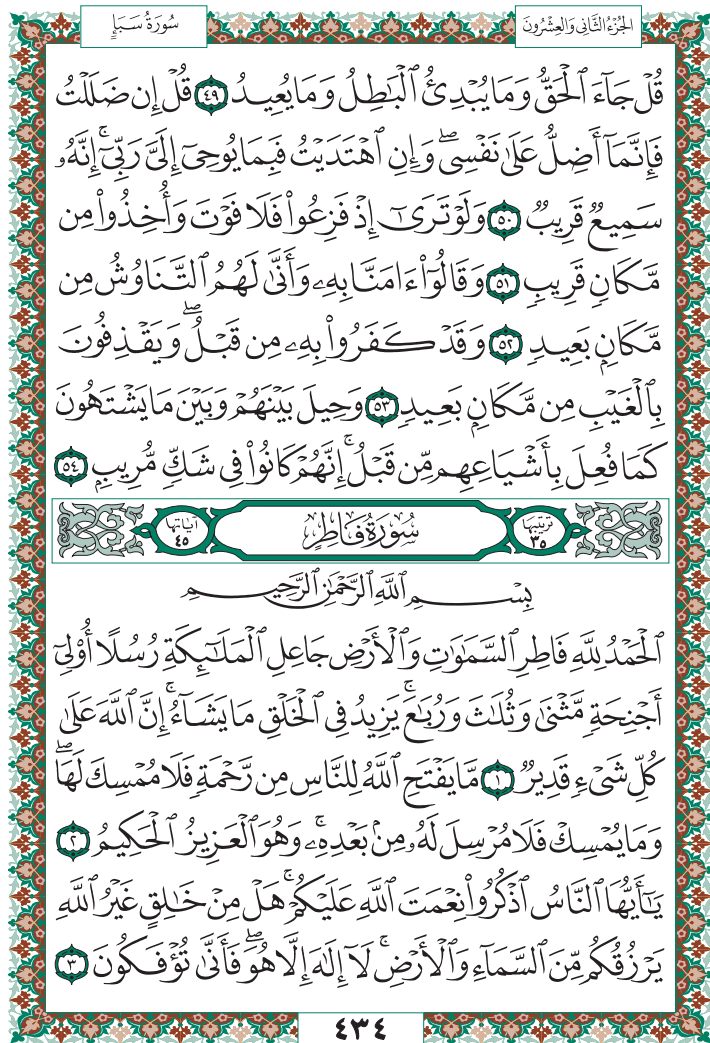 سُورَةُ سَبَإٍ
الجُزْءُ الثَّانِي وَالعِشْرُونَ
قُلْ جَآءَ ٱلْحَقُّ وَمَا يُبْدِئُ ٱلْبَٰطِلُ وَمَا يُعِيدُ ٤٩ قُلْ إِن ضَلَلْتُ
فَإِنَّمَآ أَضِلُّ عَلَىٰ نَفْسِىۖ وَإِنِ ٱهْتَدَيْتُ فَبِمَا يُوحِىٓ إِلَىَّ رَبِّىٓۚ إِنَّهُۥ
سَمِيعٌ قَرِيبٌ ٥٠ وَلَوْ تَرَىٰٓ إِذْ فَزِعُوا۟ فَلَا فَوْتَ وَأُخِذُوا۟ مِن
مَّكَانٍ قَرِيبٍ ٥١ وَقَالُوٓا۟ ءَامَنَّا بِهِۦ وَأَنَّىٰ لَهُمُ ٱلتَّنَاوُشُ مِن
مَّكَانٍۭ بَعِيدٍ ٥٢ وَقَدْ كَفَرُوا۟ بِهِۦ مِن قَبْلُۖ وَيَقْذِفُونَ
بِٱلْغَيْبِ مِن مَّكَانٍۭ بَعِيدٍ ٥٣ وَحِيلَ بَيْنَهُمْ وَبَيْنَ مَا يَشْتَهُونَ
كَمَا فُعِلَ بِأَشْيَاعِهِم مِّن قَبْلُۚ إِنَّهُمْ كَانُوا۟ فِى شَكٍّ مُّرِيبٍۭ ٥٤
ترتيبها ٣٥ سُورَةُ فَاطِرٍ آياتها ٤٥
بِسْمِ ٱللَّهِ ٱلرَّحْمَٰنِ ٱلرَّحِيمِ
ٱلْحَمْدُ لِلَّهِ فَاطِرِ ٱلسَّمَٰوَٰتِ وَٱلْأَرْضِ جَاعِلِ ٱلْمَلَٰٓئِكَةِ رُسُلًا أُو۟لِىٓ
أَجْنِحَةٍ مَّثْنَىٰ وَثُلَٰثَ وَرُبَٰعَۚ يَزِيدُ فِى ٱلْخَلْقِ مَا يَشَآءُۚ إِنَّ ٱللَّهَ عَلَىٰ
كُلِّ شَىْءٍ قَدِيرٌ ١ مَّا يَفْتَحِ ٱللَّهُ لِلنَّاسِ مِن رَّحْمَةٍ فَلَا مُمْسِكَ لَهَاۖ
وَمَا يُمْسِكْ فَلَا مُرْسِلَ لَهُۥ مِنۢ بَعْدِهِۦۚ وَهُوَ ٱلْعَزِيزُ ٱلْحَكِيمُ ٢
يَٰٓأَيُّهَا ٱلنَّاسُ ٱذْكُرُوا۟ نِعْمَتَ ٱللَّهِ عَلَيْكُمْۚ هَلْ مِنْ خَٰلِقٍ غَيْرُ ٱللَّهِ
يَرْزُقُكُم مِّنَ ٱلسَّمَآءِ وَٱلْأَرْضِۚ لَآ إِلَٰهَ إِلَّا هُوَۖ فَأَنَّىٰ تُؤْفَكُونَ ٣
٤٣٤